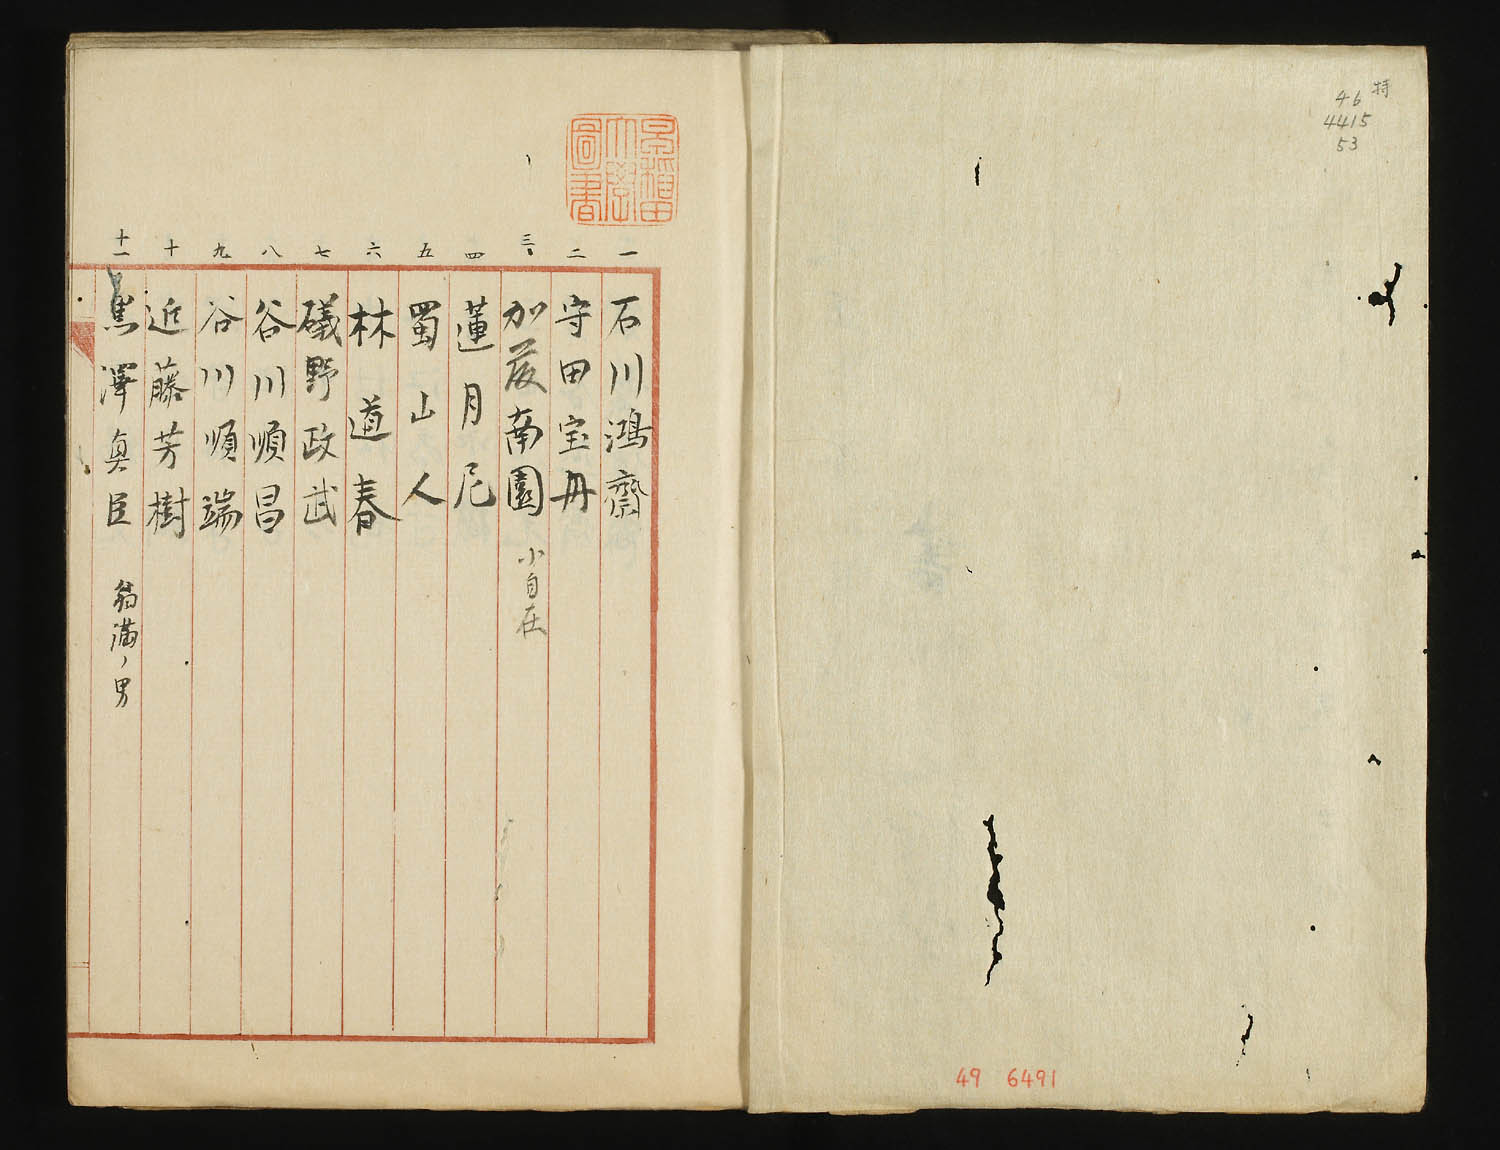 特
46
4415
53
49 6491
早稲田大学図書
一 石川鴻齋
二 守田宝丹
三 加茂南園 小自在
四 蓮月尼
五 蜀山人
六 林道春
七 礒野政武
八 谷川順昌
九 谷川順端
十 近藤芳樹
十一 黒澤真臣 翁満ノ男